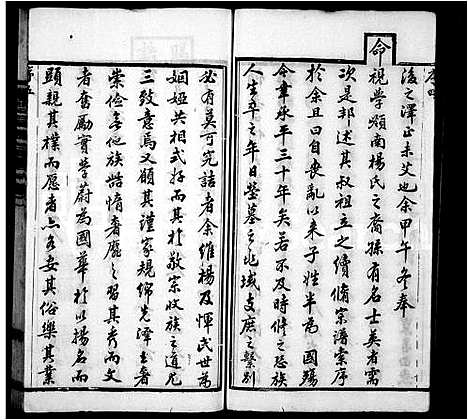 序四
後之澤正未艾也余甲午冬奉
命視學潁南楊氏之裔孫有名士英者需
次是邦述其叔祖立之續脩宗譜索序
於余且曰自喪亂以来子姓半為國殤
今幸承平三十年矣若不及時修之恐族
人生卒之年日塋墓之地域支庶之繁別
必有莫可究詰者余維楊及惲氏世為
姻婭共相式好于其於敬宗收族之道尼
三致意焉又願其謹家規綿先澤士者
崇儉無他族誥惰奢靡之習其秀而文
者奮勵實學蔚為國華於以揚名而
顯親其樸而愿者亦各安其俗樂其業
序五